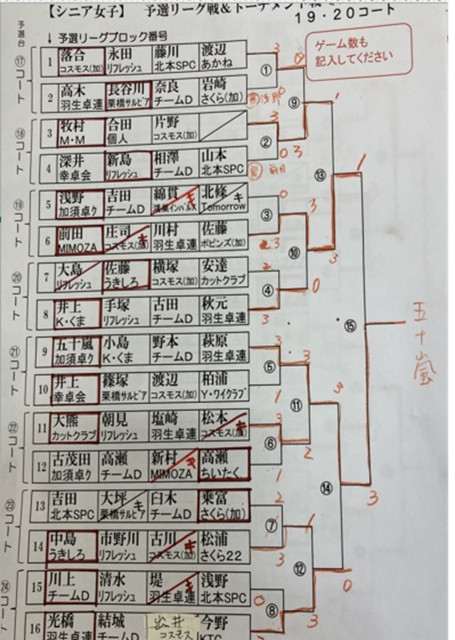 【シニア女子】 予選リーグ戦&トーナメント
19・20コート
予選台
↓予選リーグブロック番号
ゲーム数も
記入してください
⑰コート
1 落合 永田 藤川 渡辺
コスモス(加) リフレッシュ 北本SPC あかね
2 高木 長谷川 奈良 岩崎
羽生卓連 栗橋サルビア チームD さくら(加)
⑱コート
3 牧村 合田 片野
M・M 個人 コスモス(加)
4 深井 新島 相澤 山本
幸卓会 リフレッシュ チームD 北本SPC
⑲コート
5 浅野 吉田 綿貫 北條 キ
加須卓ク チームD Tomorrow
6 前田 庄司 キ 川村 佐藤
MIMOZA コスモス(加) 羽生卓連 ボビンズ(加)
⑳コート
7 大島 佐藤 横塚 安達
リフレッシュ うきしろ コスモス(加) カットクラブ
8 井上 手塚 古田 秋元
K・くま リフレッシュ チームD 羽生卓連
㉑コート
9 五十嵐 小島 野本 萩原
加須卓ク K・くま チームD 羽生卓連
10 井上 篠塚 渡辺 柏浦
幸卓会 栗橋サルビア コスモス(加) Y・ワイクラブ
㉒コート
11 大熊 朝見 塩崎 松本 キ
カットクラブ リフレッシュ 羽生卓連 コスモス(加)
12 古茂田 高瀬 新村 キ 高瀬
加須卓ク チームD MIMOZA ちいたく
㉓コート
13 吉田 大坪 キ 臼木 乗富
北本SPC 栗橋サルビア チームD さくら(加)
14 中島 市野川 古川 キ 松浦
うきしろ リフレッシュ コスモス(加) さくら22
㉔コート
15 川上 清水 堤 キ 浅野
チームD リフレッシュ 羽生卓連 北本SPC
16 光橋 結城 今野
羽生卓連 チームD コスモス KTC
① ② ③ ④ ⑤ ⑥ ⑦ ⑧
⑨ ⑩ ⑪ ⑫
⑬ ⑭
⑮
五十嵐